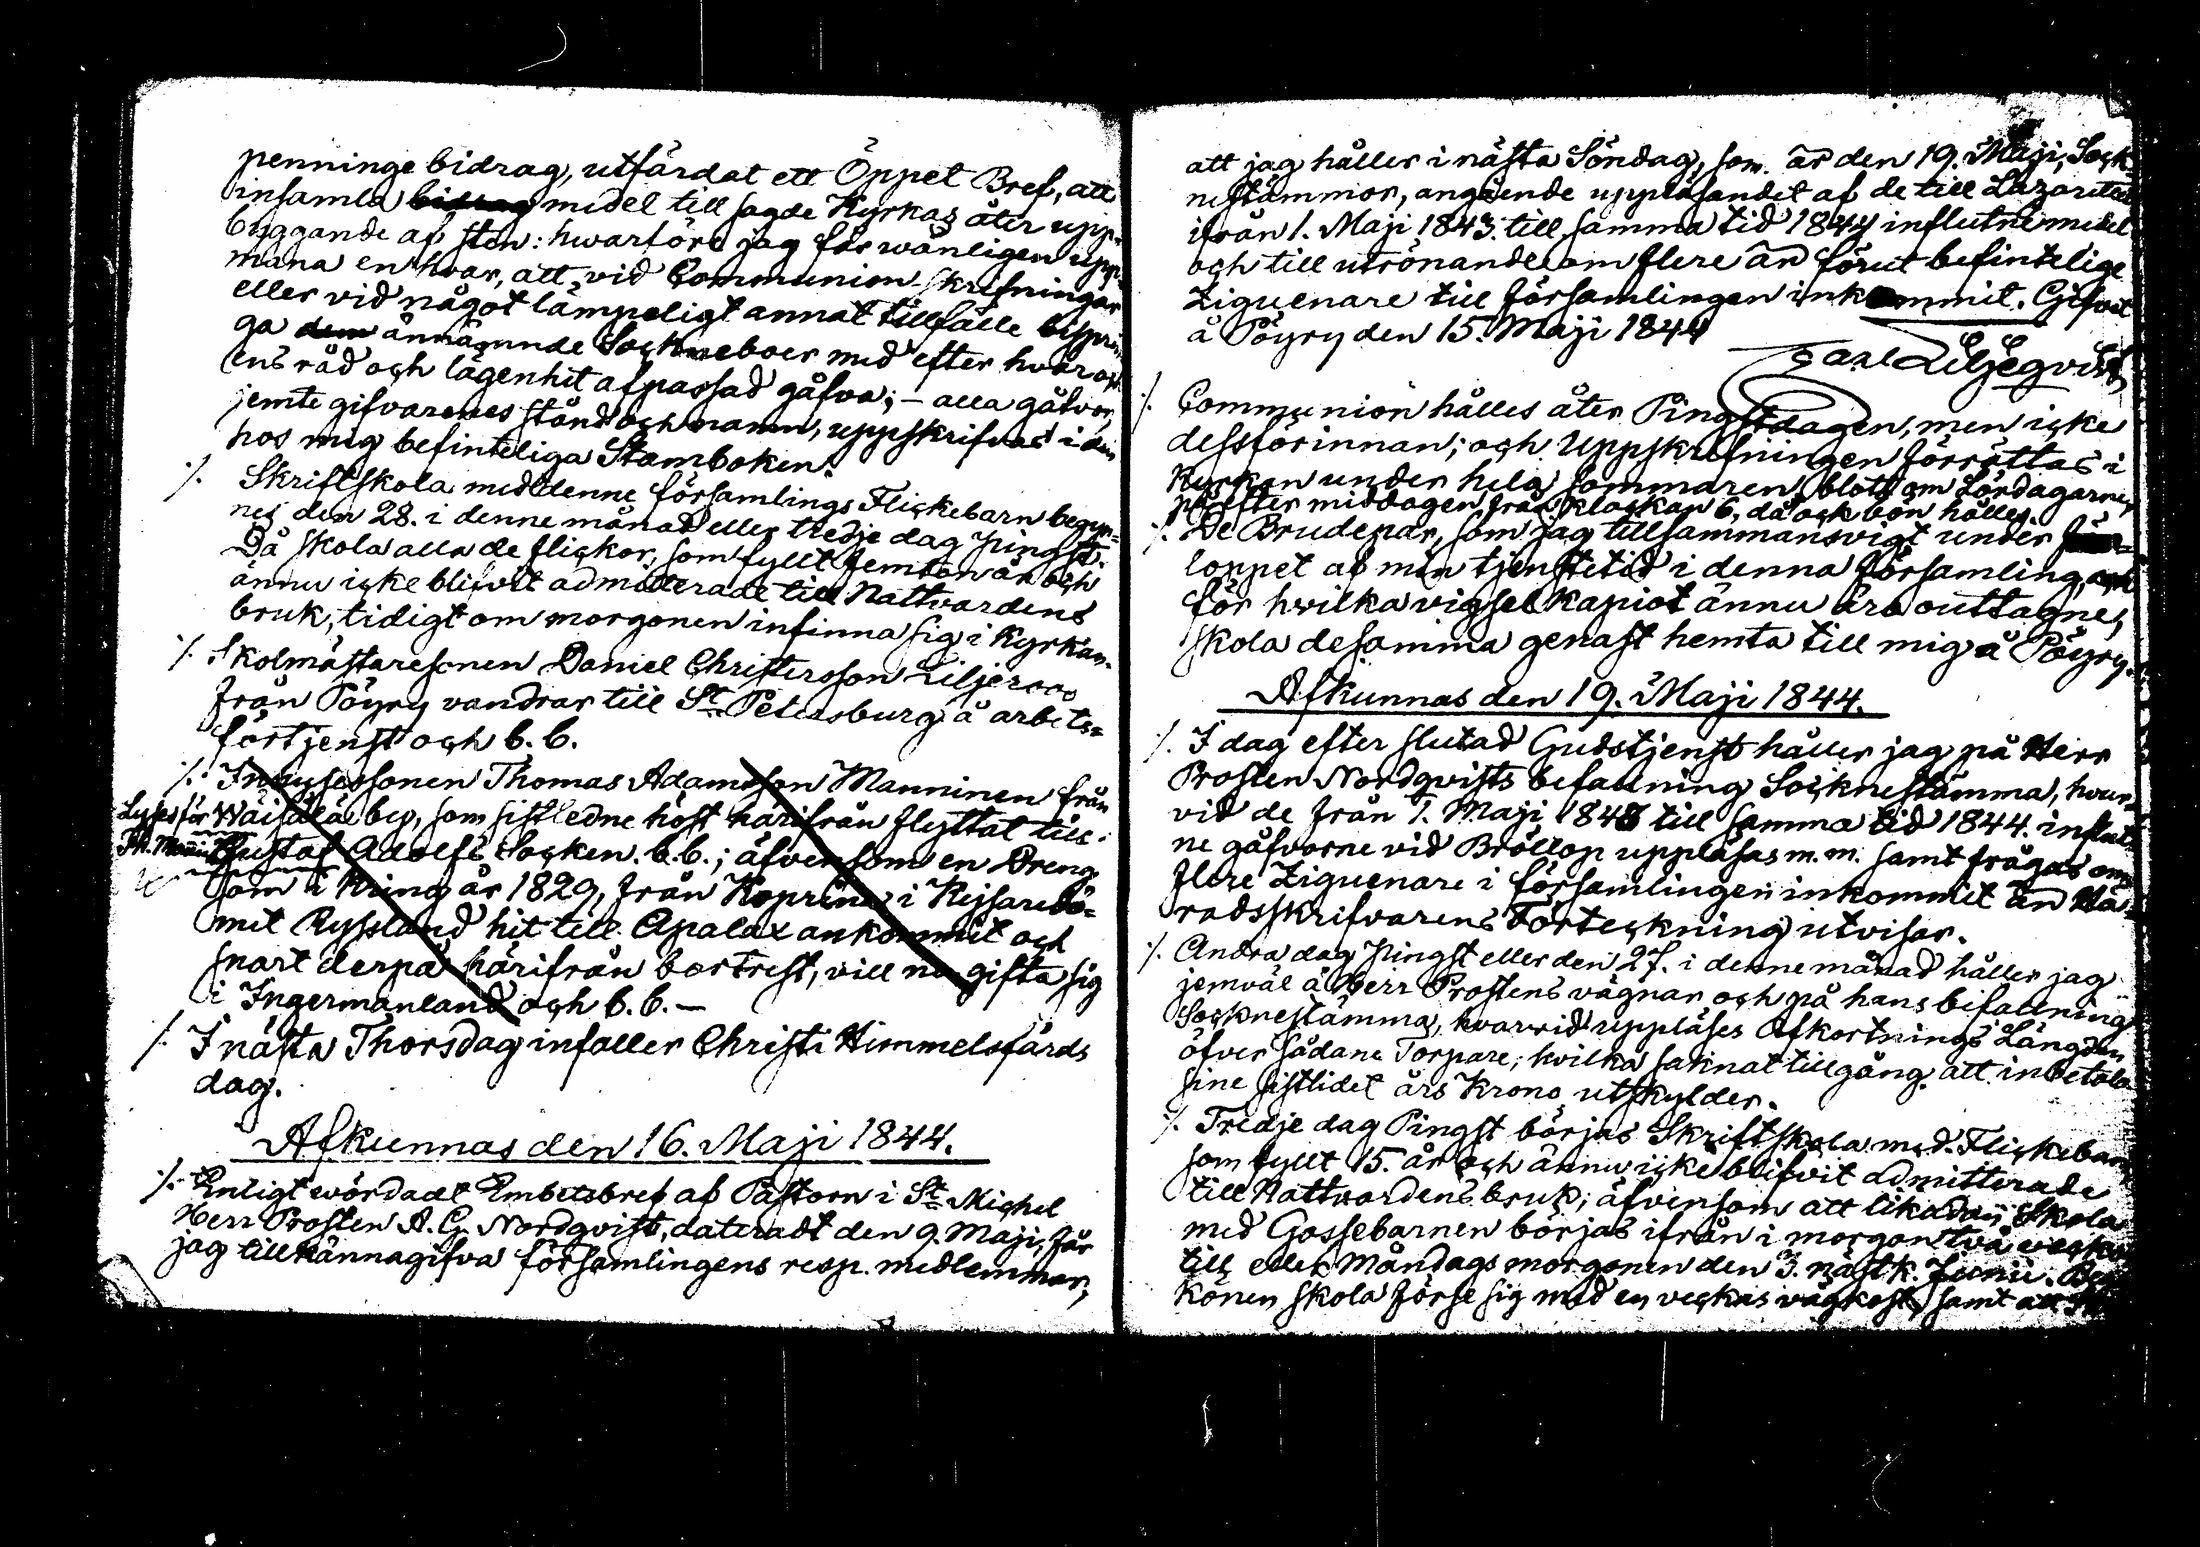 penninge bidrag, utfärdat ett Öppet Bref, att
insamla bidrag medel till sagde Kyrkas åter upp-
byggande af sten: hwarföre jag får wänligen upp-
mana en hvar, att, vid Communion-skrifningar
eller vid något lämpeligt annat tillfälle
ga dem ännämnde Sockneboer med efter hvar och
ens råd och lägenhet afpassad gåfva; – alla gåfvor,
jemte gifvarenes stånd och namn, uppskrifvas i den
hos mig befinteliga Stamboken.
./. Skriftskola med denne församlings Flickebarn begyn-
nes den 28. i denne månad eller tredje dag Pingst.
Då skola alla de flickor, som fyllt femton år och
ännu icke blifvit admitterade till Nattvardens
bruk, tidigt om morgonen infinna sig i Kyrkan.
./. Skolmästaresonen Daniel Christersson Liljeroos
från Pöyry vandrar till St Petersburg å arbets-
förtjenst och b.b.
./. Inhysessonen Thomas Adamsson Manninen från
Wäisälä by, som sistledne höst härifrån flyttat till
Gustaf Adolfs Socken. b.b.; äfvensom en Dreng
som i kring år 1829, från Koprina i Kejsaredö-
met Ryssland hit till Apalax ankommit och
snart derpå härifrån bortrest, vill nu gifta sig
i Ingermanland och b.b. –
./. I nästa Thorsdag infaller Christi Himmelsfärds
dag.
Afkunnas den 16. Maji 1844.
./. Enligt wördadt Embetsbref af Pastorn i St Michel
Herr Prosten A. G. Nordqvist, dateradt den 9. Maji, får
jag tillkännagifva församlingens resp. medlemmar,
att jag håller i nästa Söndag, som är den 19. Maji, Sock-
nestämmor, angående uppläsandet af de till Lazarettet
ifrån 1. Maji 1843. till samma tid 1844 influtne medel
och till utrönande om flere än förut befintelige
Ziguenare till församlingen inkommit. Gifvet
å Pöyry den 15. Maji 1844
Carl Liljeqvist
./. Communion hålles åter Pingstdagen, men icke
dessförinnan; och Uppskrifningen förrättas i
Kyrkan under hela sommaren blott om Lördagarne,
på efter middagen från klockan 6, då ock bön hålles.
./. De Brudepar, som jag tillsammansvigt under
loppet af min tjenstetid i denna församling, och
för hvilka vigsel kapiot ännu äro outtagne,
skola desamma genast hemta till mig å Pöyry.
Afkunnas den 19. Maji 1844.
./. I dag efter slutad Gudstjenst håller jag på Herr
Prosten Nordqvists befallning Socknestämma, hvar-
vid de från 1. Maji 1843 till samma tid 1844. influt-
ne gåfvorne vid Bröllop uppläsas m.m. samt frågas om
flere Ziguenare i församlingen inkommit än Hä-
radsskrifvarens Förteckning utvisar.
./. Andra dag Pingst eller den 27. i denne månad håller jag
jemväl å Herr Prostens vägnar och på hans befallning
Socknestämma, hvarvid uppläses Afkortnings Längden
öfver sådane Torpare, hvilka saknat tillgång att inbetala
sine sistlidet års Krono utskylder.
./. Tredje dag Pingst börjas Skriftskola med Flickebarn
som fyllt 15. år och ännu icke blifvit admitterade
till Nattvardens bruk; äfvensom att likadan Skola
med Gossebarnen börjas ifrån i morgon två veckor
till eller Måndags morgonen den 3. nästk. Junii.
könen skola förse sig med en veckas vägkost, samt att